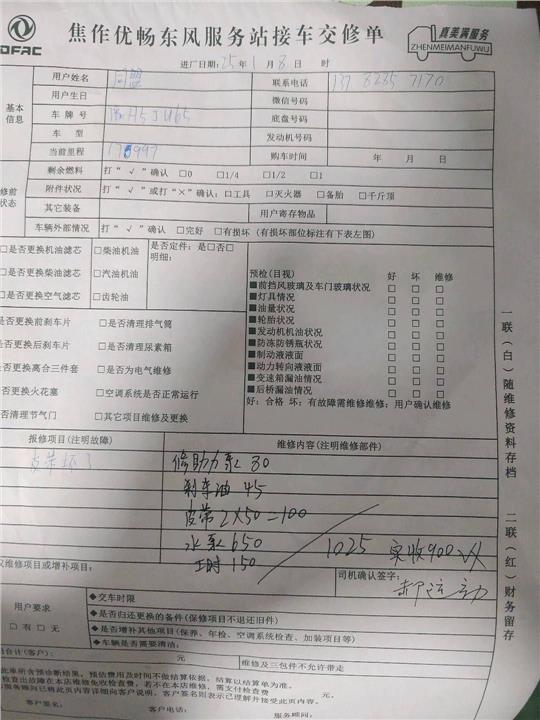 DFAC
焦作优畅东风服务站接车交修单
真美满服务
ZHENMEIMANFUWU
进厂日期: 25年1月8日 时
基本信息
用户姓名 联系电话
用户生日 微信号码
车牌号 底盘号码
车型 发动机号码
当前里程 购车时间 年 月 日
修前状态
剩余燃料 打“√”确认 □0 □1/4 □1/2 □1
附件状况 打“√”或打“×”确认: □工具 □灭火器 □备胎 □千斤顶
其它装备 用户寄存物品
车辆外部情况 打“√”确认 □完好 □有损坏 (有损坏部位标注有下表左图)
□是否更换机油滤芯 □柴油机油 是否定件: 是□否□
明细:
□是否更换柴油滤芯 □汽油机油
□是否更换空气滤芯 □齿轮油
是否更换前刹车片 □是否清理排气筒
是否更换后刹车片 □是否清理尿素箱
是否更换离合三件套 □是否为电气维修
是否更换火花塞 □空调系统是否正常运行
是否清理节气门 □其它项目维修及更换
预检(目视) 好 坏 维修
■前挡风玻璃及车门玻璃状况 □ □ □
■灯具情况 □ □ □
■油量状况 □ □ □
■轮胎状况 □ □ □
■发动机机油状况 □ □ □
■防冻防锈瓶状况 □ □ □
■制动液液面 □ □ □
■动力转向液液面 □ □ □
■变速箱漏油情况 □ □ □
■后桥漏油情况 □ □ □
好: 合格 坏: 有故障需维修维修: 用户确认维修
报修项目(注明故障) 维修内容(注明维修部件)
皮带坏了 修助力泵 80
刹车油 45
皮带 2X50=100
水泵 650
工时 150
1025 实收900
议维修项目或增补项目:
司机确认签字:
用户要求
□有 □无
◆交车时限
◆是否归还更换的备件(保修项目不退还旧件)
◆是否增补其他项目(保养、年检、空调系统检查、加装项目等)
◆车辆是否需要清洁:
用合计(客户): 元 维修及三包件不允许带走
此单所含预诊断结果, 预估费用及时间不做结算依据, 结算以结算单为准。
检查出故障在本店维修免收检查费, 若不在本店维修, 需支付检查费 元
服务顾问已将此页内容详细向客户说明, 客户签名则表示已理解并接受此页内容。
客户签名: 客户电话: 服务顾问:
一联(白)随维修资料存档
二联(红)财务留存